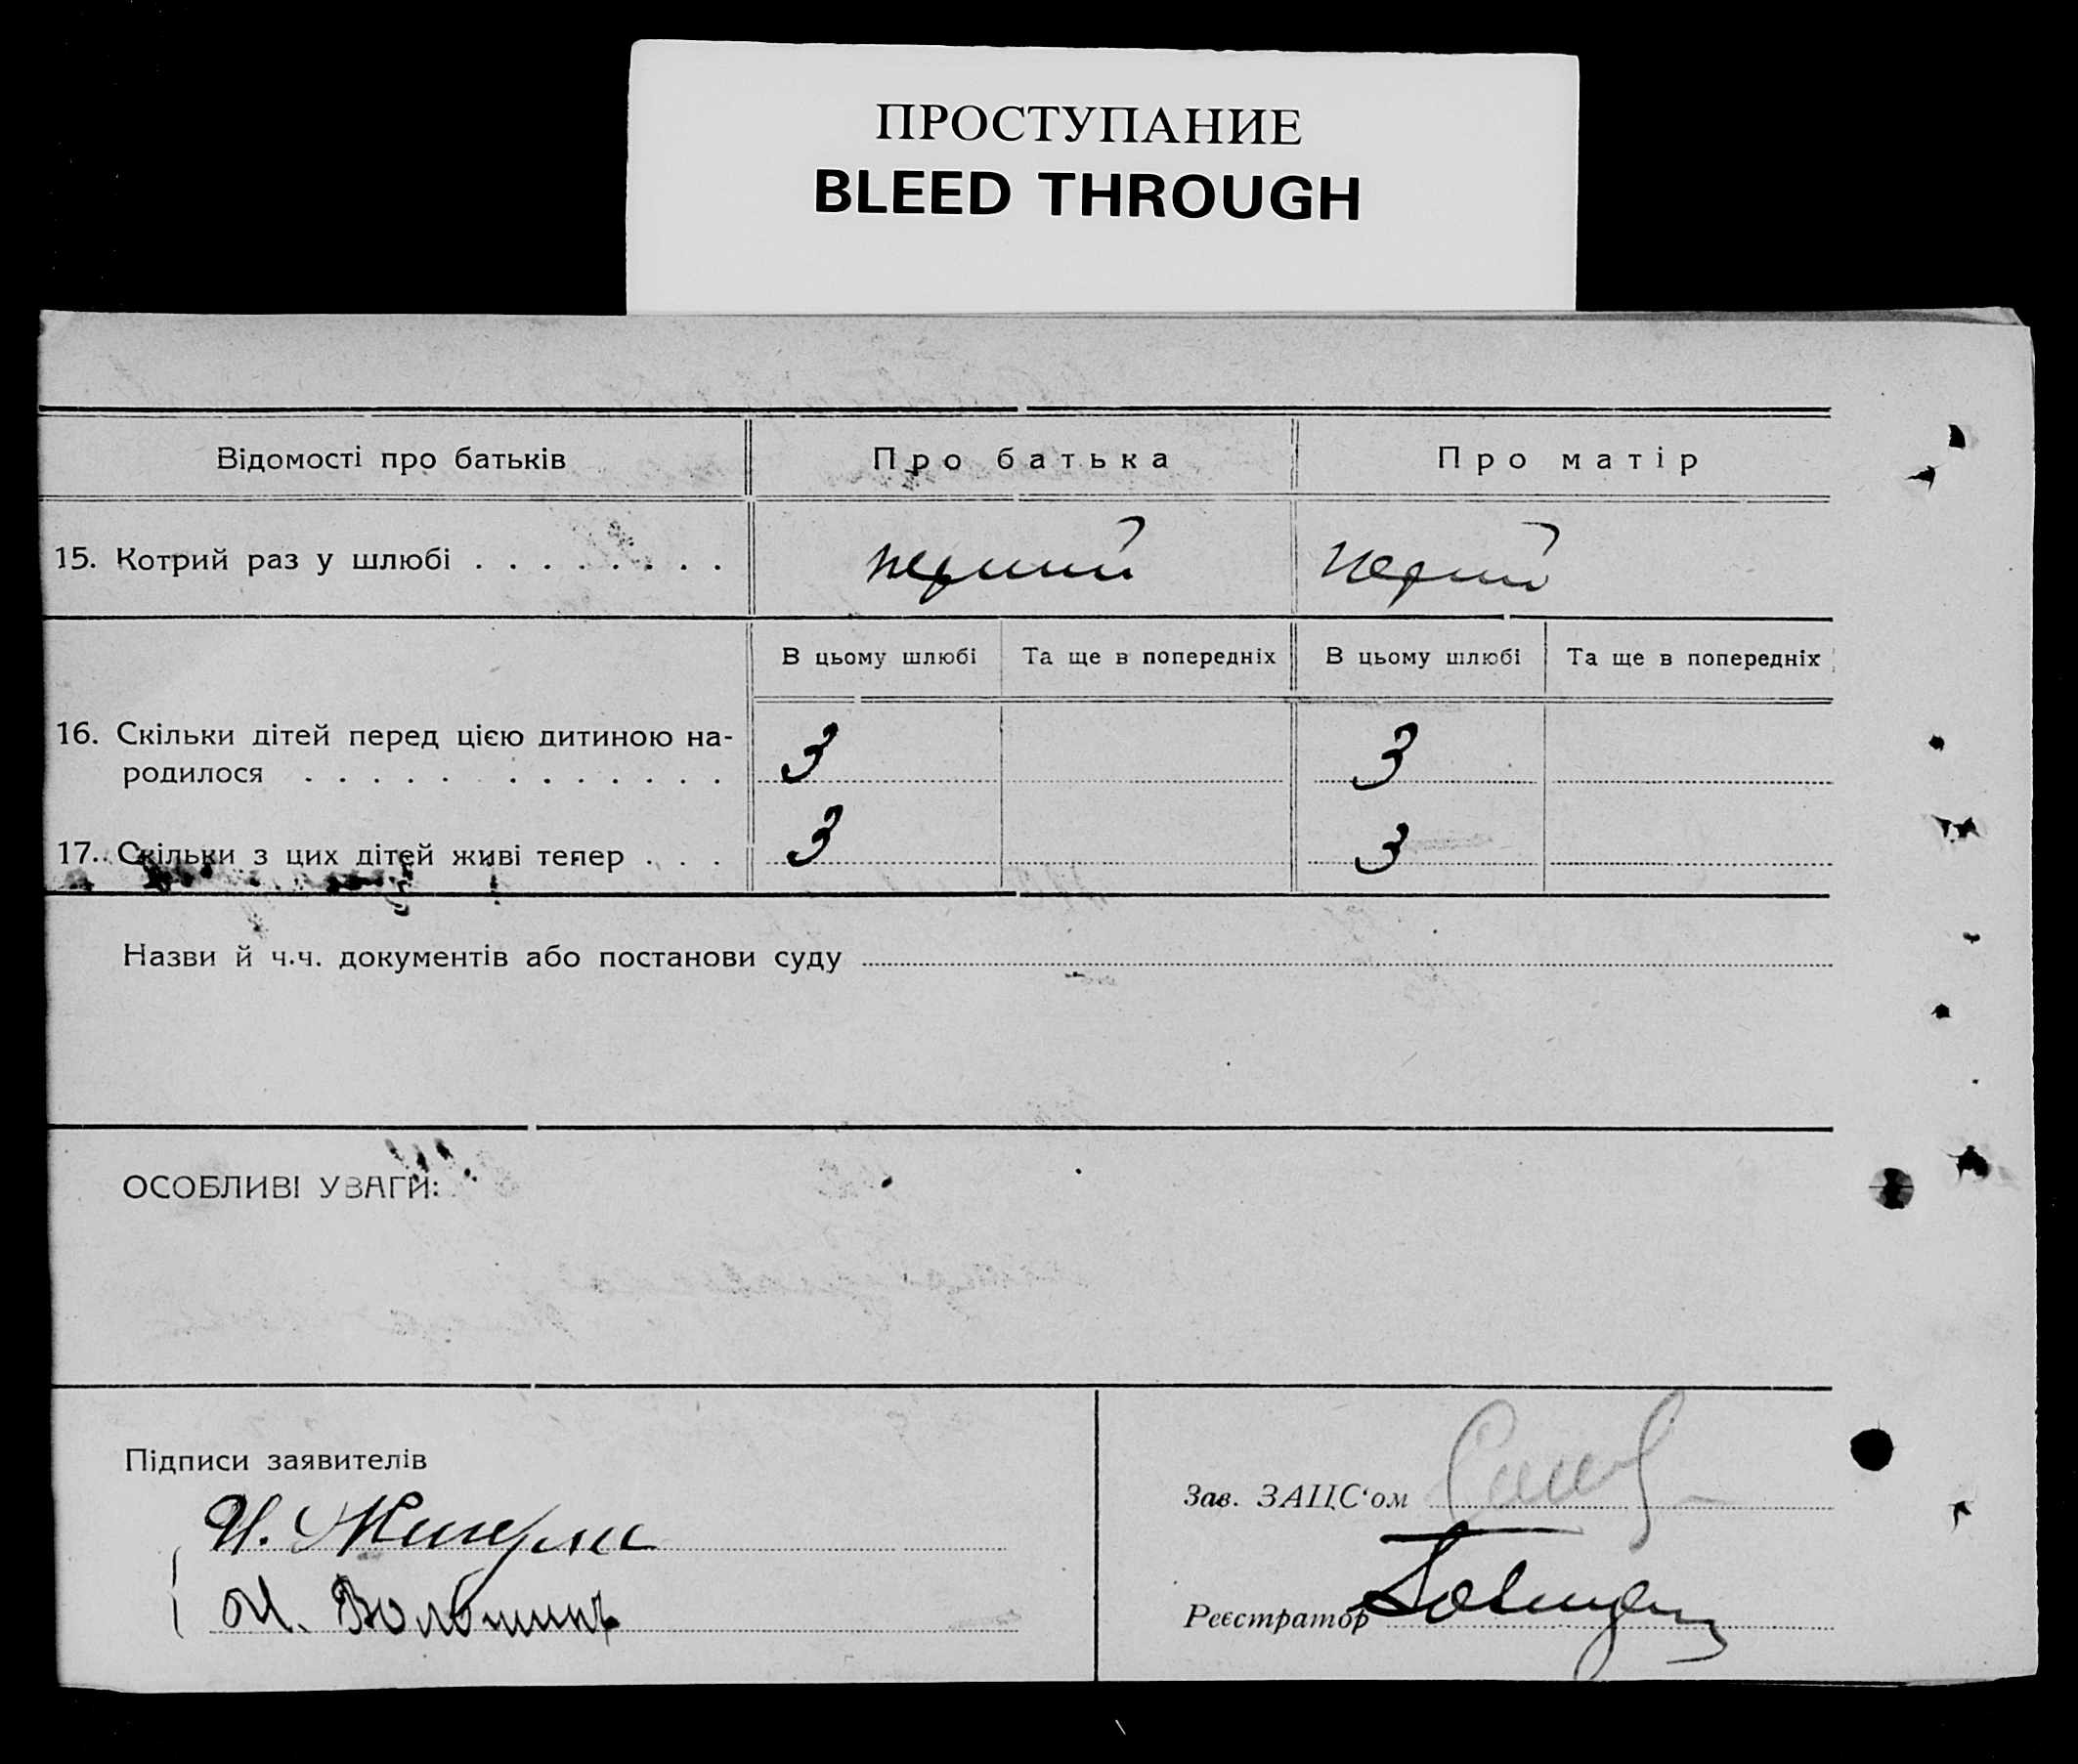 ПРОСТУПАНИЕ
BLEED THROUGH
Відомості про батьків Про батька Про матір
15. Котрий раз у шлюбі . . . . . . . . перший перший
В цьому шлюбі Та ще в попередніх В цьому шлюбі Та ще в попередніх
16. Скільки дітей перед цією дитиною на-
родилося . . . . . . . . . . . . 3 3
17. Скільки з цих дітей живі тепер . . . 3 3
Назви й ч.ч. документів або постанови суду
ОСОБЛИВІ УВАГИ:
Підписи заявителів
Зав. ЗАЦС‘ом
М. Волошинъ
Реєстратор